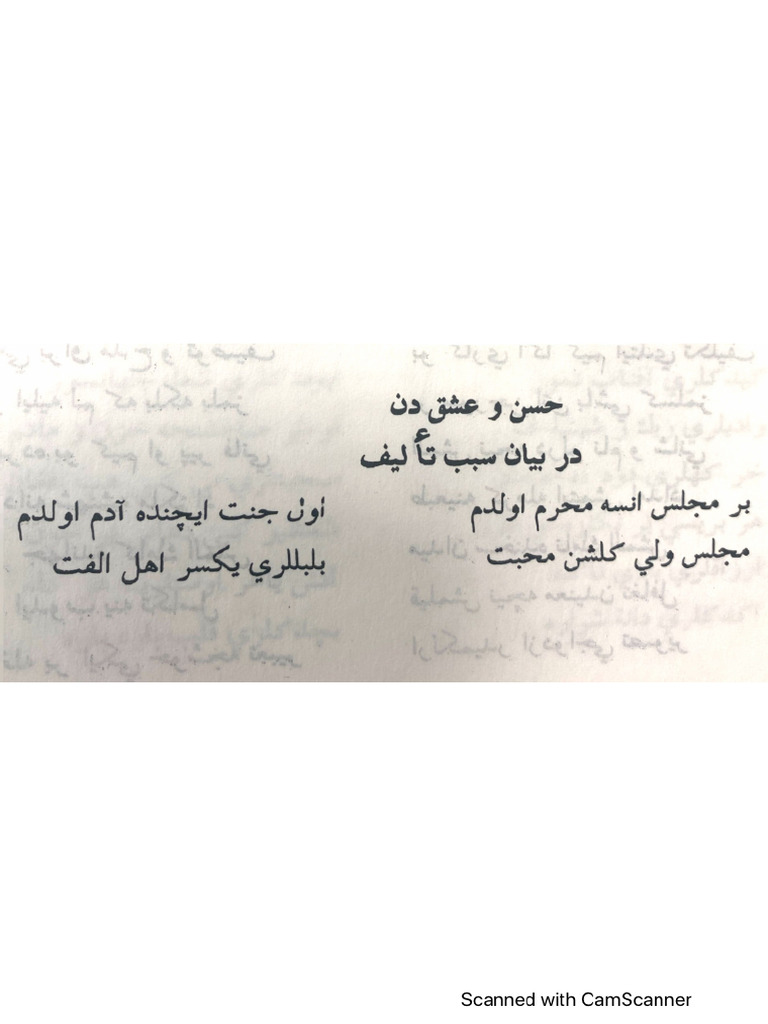 حسن و عشق دن
در بيان سبب تأ ليف
بر مجلس انسه محرم اولدم اول جنت ايچنده آدم اولدم
مجلس ولي كلشن محبت بلبللري يكسر اهل الفت
Scanned with CamScanner